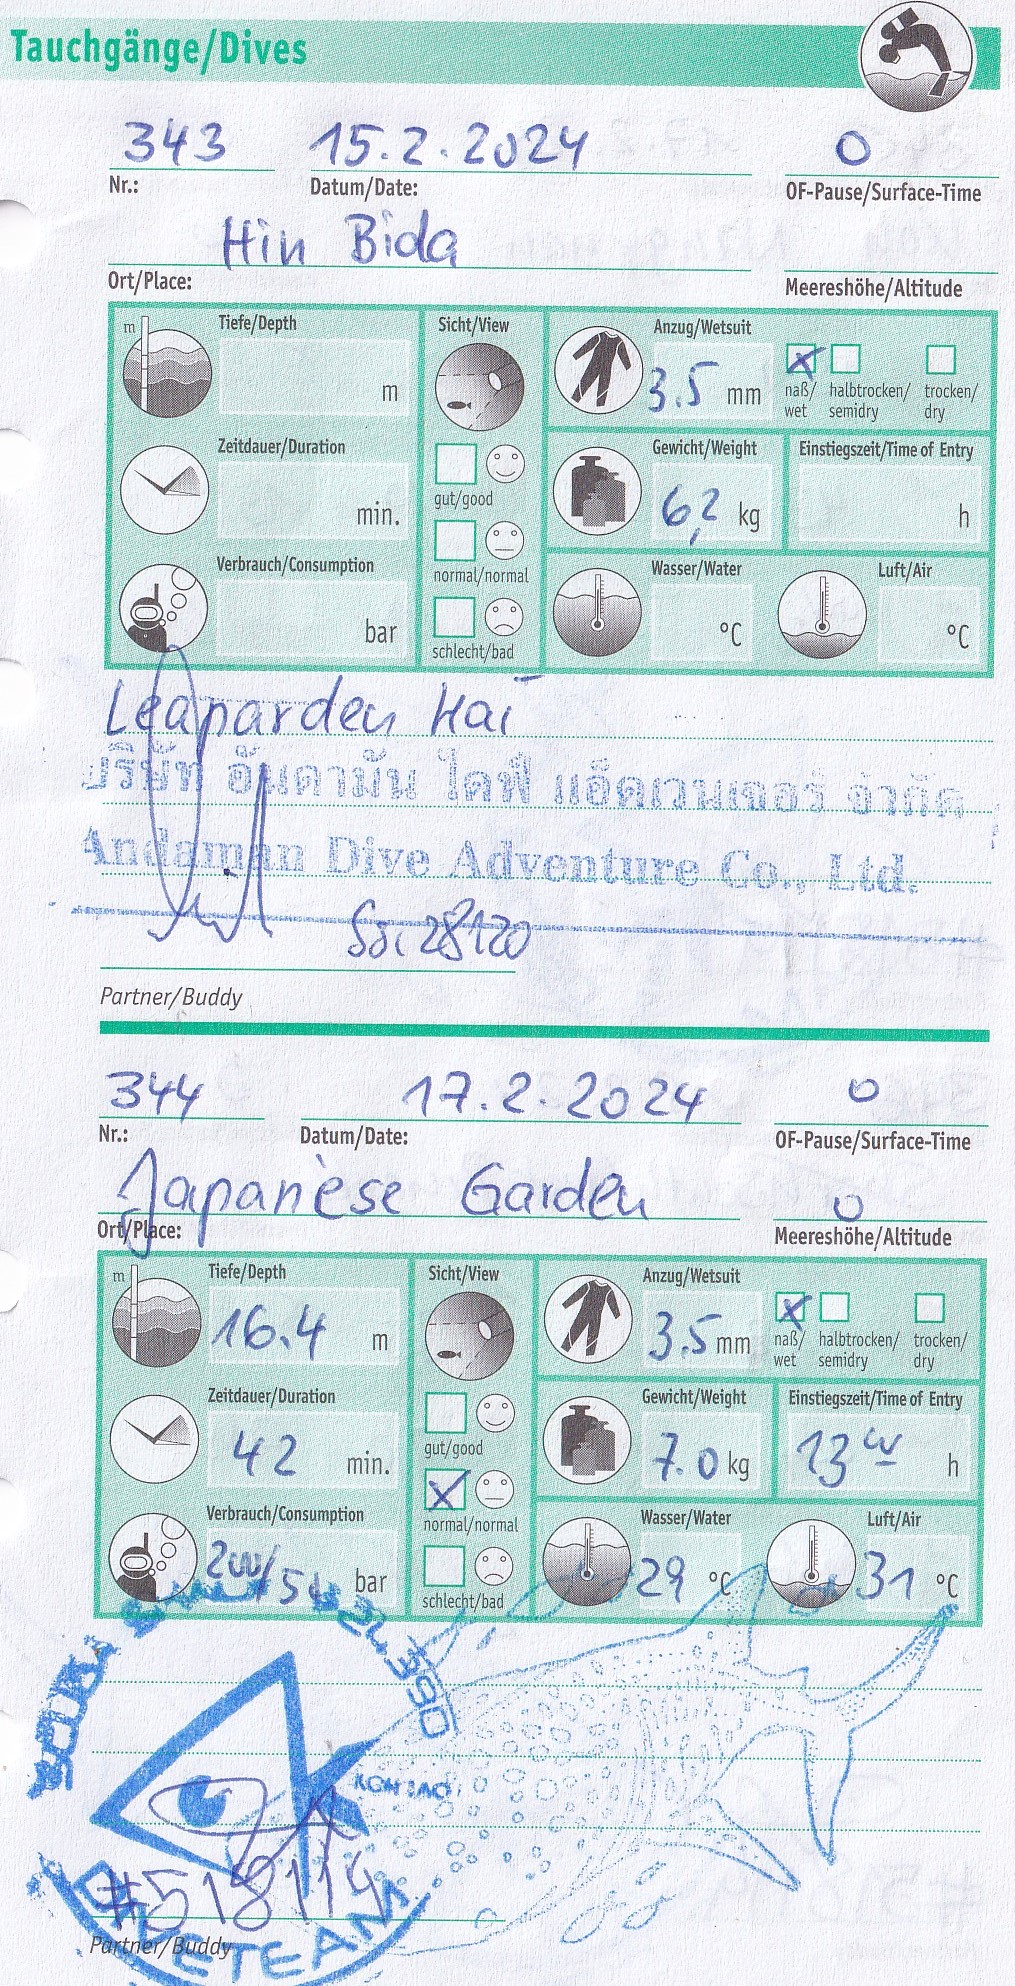 Tauchgänge/Dives
343 15.2.2024 0
Nr.: Datum/Date: OF-Pause/Surface-Time
Hin Bida
Ort/Place: Meereshöhe/Altitude
m Tiefe/Depth Sicht/View Anzug/Wetsuit
m 3.5 mm naß/ halbtrocken/ trocken/
wet semidry dry
Zeitdauer/Duration Gewicht/Weight Einstiegszeit/Time of Entry
min. gut/good 6,2 kg h
Verbrauch/Consumption normal/normal Wasser/Water Luft/Air
bar °C °C
schlecht/bad
Leaparden Hai
บริษัท อันดามัน ไดฟ์ แอ็ดเวนเจอร์ จำกัด
Andaman Dive Adventure Co., Ltd.
SSI 28120
Partner/Buddy
344 17.2.2024 0
Nr.: Datum/Date: OF-Pause/Surface-Time
Japanèse Garden 0
Ort/Place: Meereshöhe/Altitude
m Tiefe/Depth Sicht/View Anzug/Wetsuit
16.4 m 3.5 mm naß/ halbtrocken/ trocken/
wet semidry dry
Zeitdauer/Duration Gewicht/Weight Einstiegszeit/Time of Entry
42 min. gut/good 7.0 kg 13 h
Verbrauch/Consumption normal/normal Wasser/Water Luft/Air
200/ bar 29 °C 31 °C
schlecht/bad
KOH TAO
#518114
Partner/Buddy
DIVETEAM